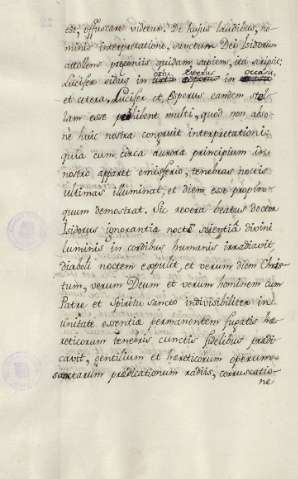 est, effuscare videtur. De hujus laudibus, no
minis interpretatione, sanctum Dei Isidorum
attollens praeconiis quidam sapiens, ita scripsit:
Lucifer sidus in ortu Esperus in occasu
et cetera. Lucifer et Esperus eandem stel
lam esse perhibent multi, quod non abso
ne huic nostra congruit interpretationi;
quia cum circa aurora principium in
nostro apparet emisferio, tenebras noctis
ultimas illuminat, et diem esse propin
quum demostrat. Sic revera beatus doctor
Isidorus ignorantia noctis scientia divini
luminis in cordibus humanis irradiavit,
diaboli noctem expulit, et verum diem Chris
tum, verum Deum et verum hominem cum
Patre et Spiritu Sancto indivisibiliter in
unitate essentia permanentem fugatis hæ
reticorum tenebris cunctis fidelibus prædi
cavit, gentilium et hæreticorum
sanctarum prædicationum radiis, corruscatio
ne